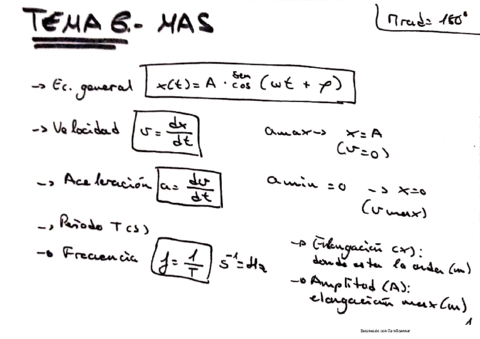 TEMA 6.- MAS
π rad = 180°
→ Ec. general x(t) = A · sen cos (ωt + φ)
→ Velocidad v = dx/dt
amax → x = A
(v=0)
→ Aceleración a = dv/dt
amin = 0 → x=0
(v max)
→ Periodo T(s)
→ Frecuencia f = 1/T s⁻¹ = Hz
→ Elongación (x):
donde esta la onda (m)
→ Amplitud (A):
elongación max (m)
1